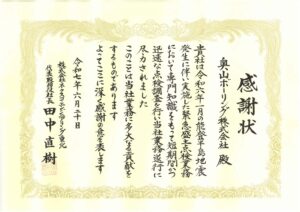 感謝状
奥山ボーリング株式会社 殿
貴社は令和六年一月の能登半島地震
発生に伴い実施した緊急盛土点検業務
において専門知識をもって短期間かつ
迅速な点検調査を行い当社業務遂行に
尽力されました
このことは当社業務に多大な貢献を
するものであります
よってここに深く感謝の意を表します
令和七年六月二十日
代表取締役社長 田中直樹